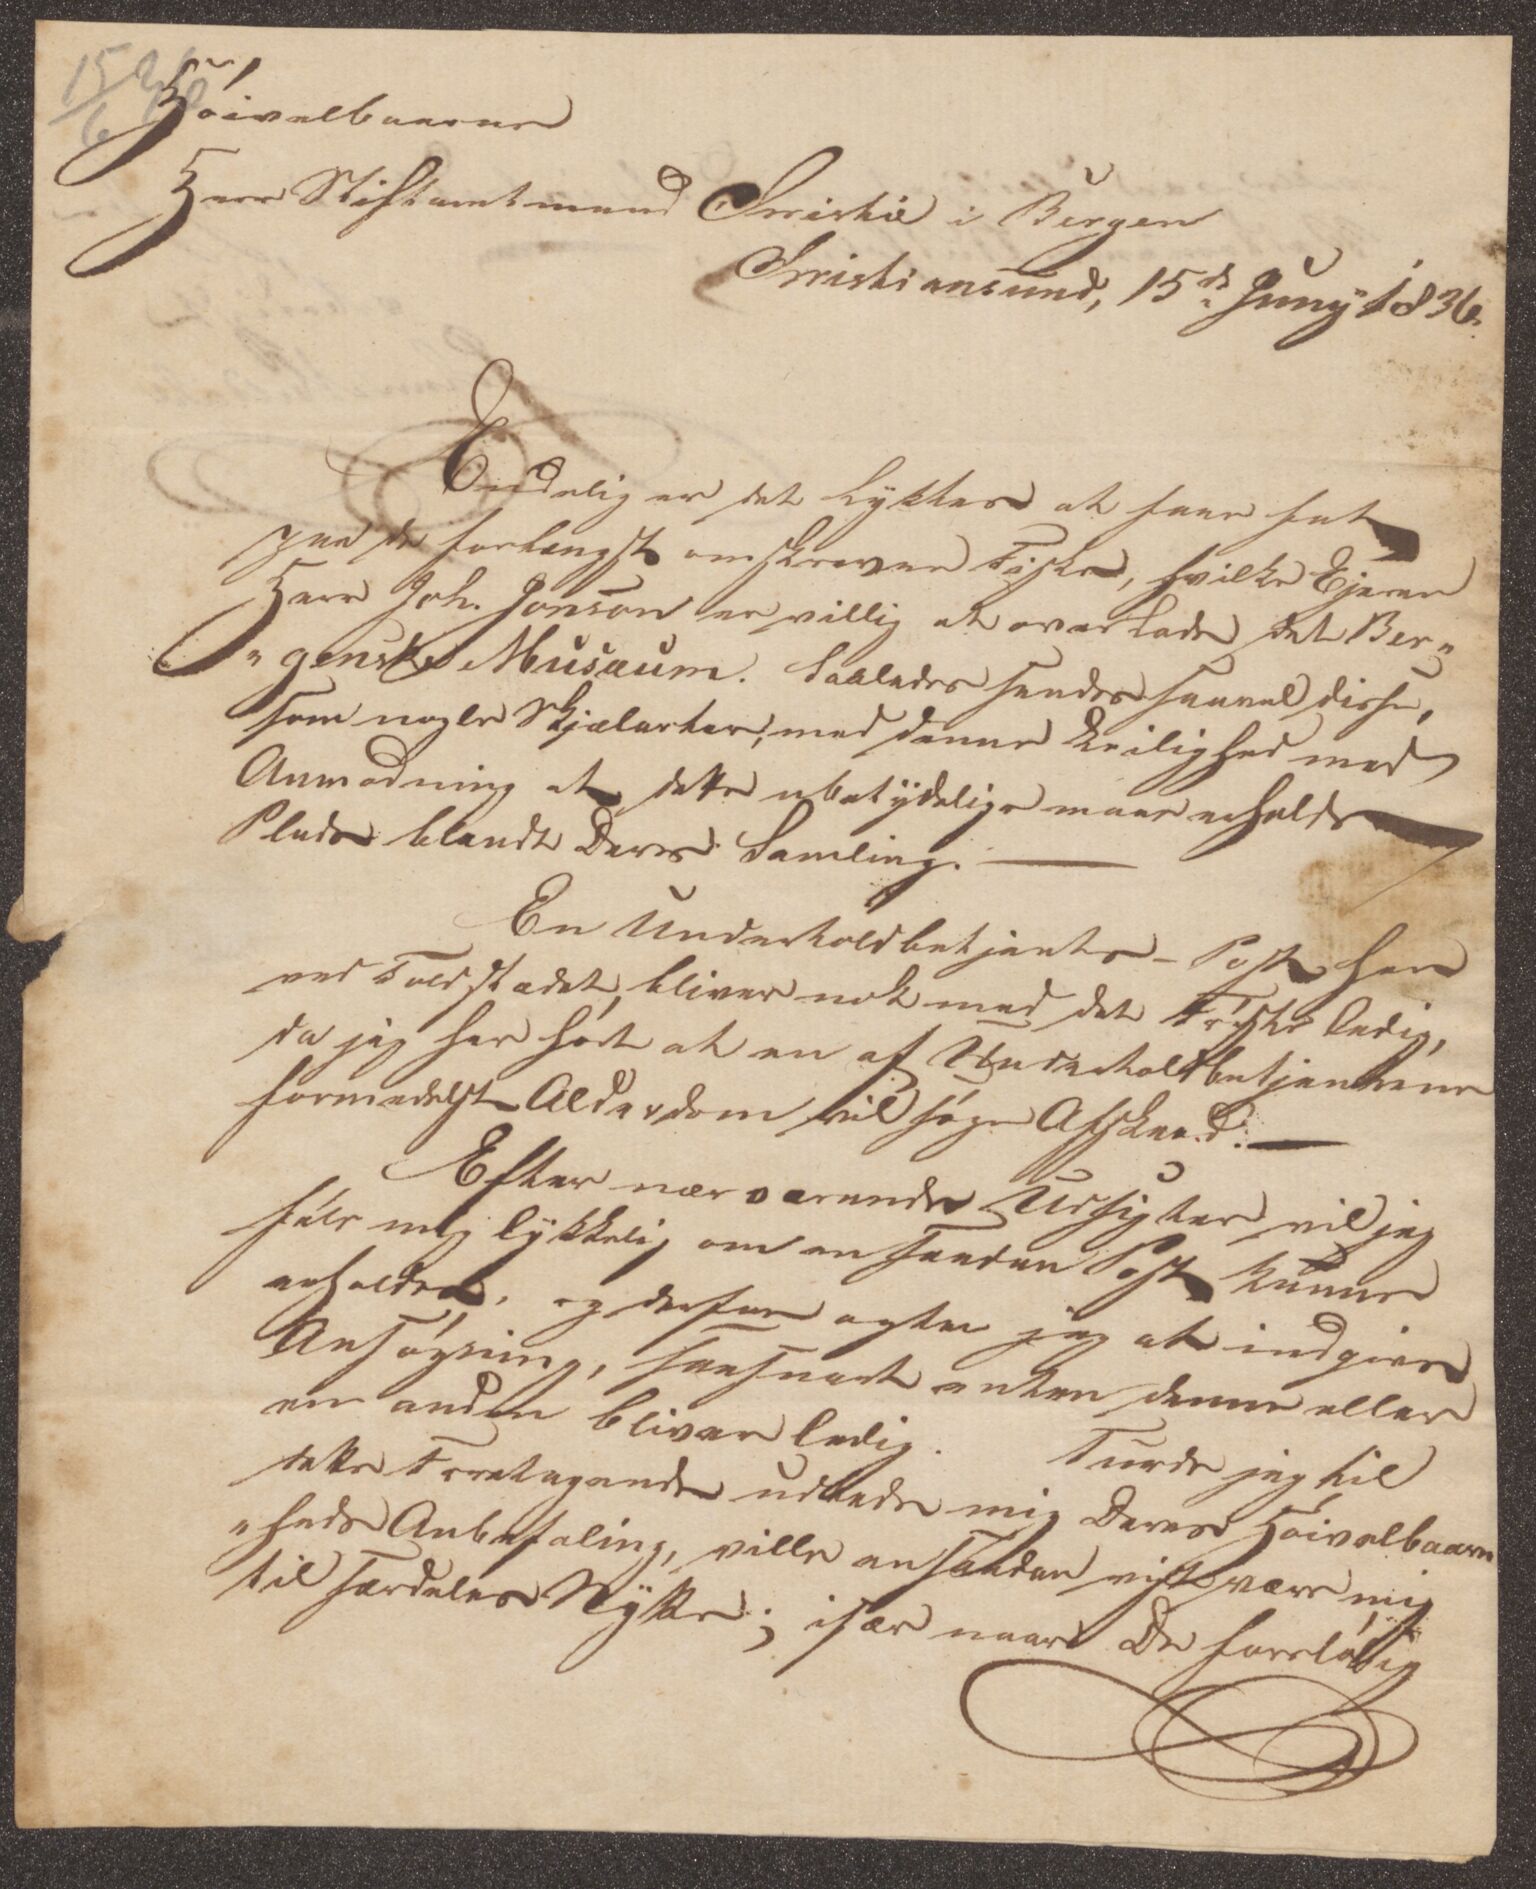 15/6
Høivelbaarne
Herr Stiftamtmand Christie i Bergen
Christiansund, 15de Juny 1836.
Endelig er det lykkes at faae fat
paa de forlængst omskrevne Fiske, hvilke Ejeren
Herr Joh. Jonson er villig at overlade det Ber„
„genske Musæum. Saaledes sendes saavel disse,
som nogle Skjælarter, med denne Leilighed med
Anmodning at dette ubetydelige maae erholde
Plads blandt Deres Samling. —
En Undertoldbetjents-Post her
ved Toldstædet, bliver nok med det første ledig,
da jeg har hørt at en af Undertoldbetjentene
formedelst Alderdom vil søge Afskeed. —
Efter nærværende Udsigter vil jeg
føle mig lykkelig om en saadan Post kunne
erholdes, og derfor agter jeg at indgive
Ansøgning, saasnart enten denne eller
en anden bliver ledig. Turde jeg til
dette Foretagende udbede mig Deres Høivelbaarn
„heds Anbefaling, ville en saadan vist være mig
til særdeles Nytte; især naar De forelöbig